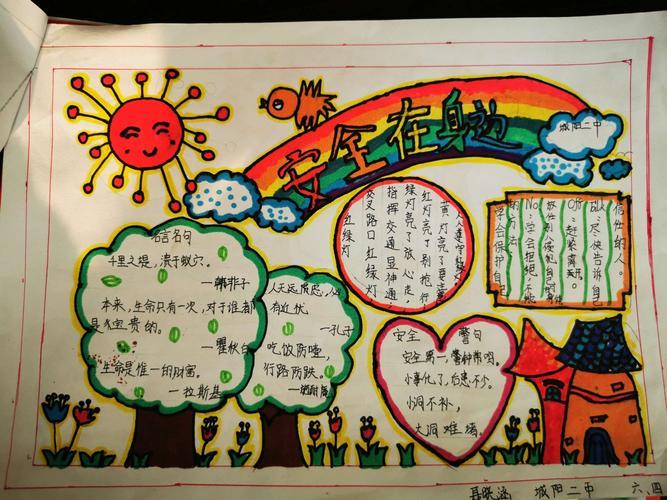 安全在身边
城阳二中
名言名句
千里之堤，溃于蚁穴。
—韩非子
本来，生命只有一次，对于谁都
是宝贵的。
—瞿秋白
生命是惟一的财富。
—拉斯基
人无远虑，必
有近忧
—孔子
吃饭防噎，
行路防跌。
红绿灯
交叉路口红绿灯
指挥交通显神通
绿灯亮了放心走
红灯亮了别抢行
黄灯亮了要注意
人人遵守红绿灯
学会保护自己
的方法：
No：学会拒绝，不能
Off：赶紧离开。
诉：尽快告诉自己
信任的人。
安全 警句
安全第一，警钟常鸣。
小事化了，后患不少。
小洞不补，
大洞难堵。
城阳二中
六、四